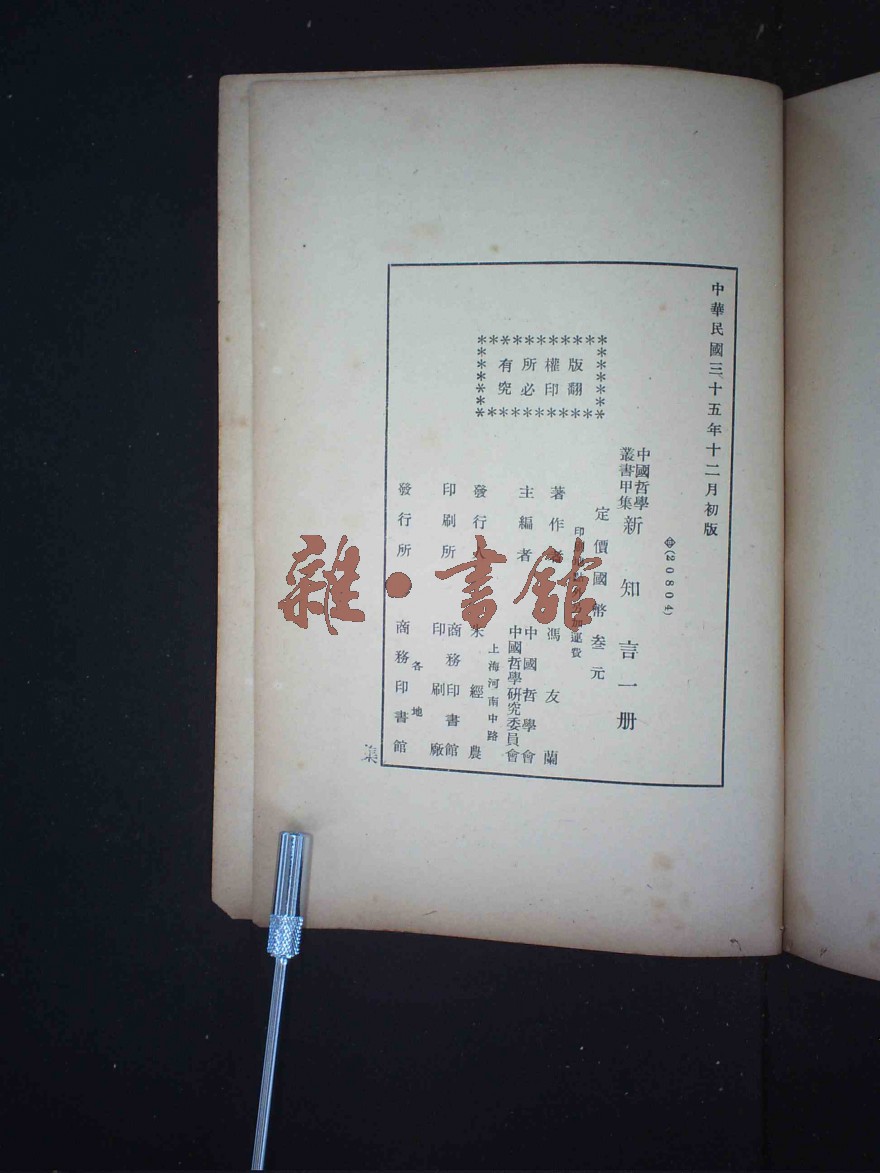 中華民國三十五年十二月初版
㊥(20804)
中國哲學
叢書甲集
新知言一册
定價國幣叁元
印刷地點外另加運費
版權所有
翻印必究
著作者 馮友蘭
主編者 中國哲學會
中國哲學研究委員會
上海河南中路
發行人 朱經農
印刷所 商務印書館
印刷廠
各地
發行所 商務印書館
集
雜·書館